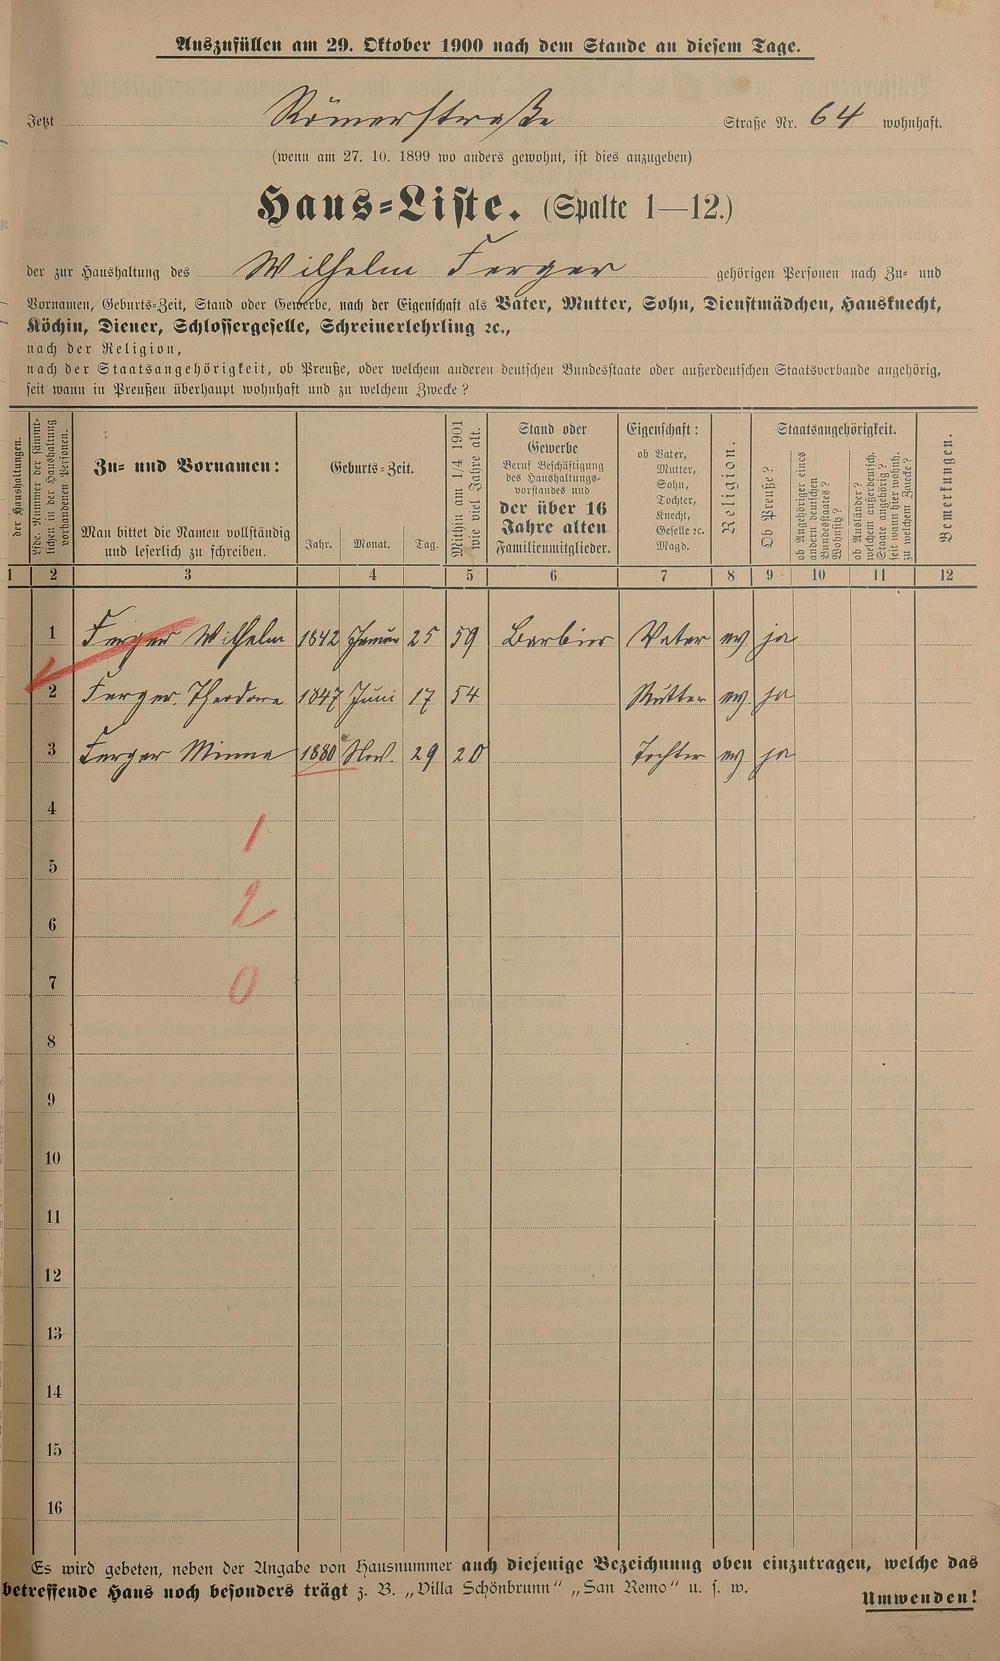 Auszufüllen am 29. Oktober 1900 nach dem Stande an diesem Tage.
Jetzt Römerstraße Straße Nr. 64 wohnhaft.
(wenn am 27. 10. 1899 wo anders gewohnt, ist dies anzugeben)
Haus-Liste. (Spalte 1—12.)
der zur Haushaltung des Wilhelm Ferger gehörigen Personen nach Zu- und
Vornamen, Geburts-Zeit, Stand oder Gewerbe, nach der Eigenschaft als Vater, Mutter, Sohn, Dienstmädchen, Hausknecht,
Köchin, Diener, Schlossergeselle, Schreinerlehrling ꝛc.,
nach der Religion,
nach der Staatsangehörigkeit, ob Preuße, oder welchem anderen deutschen Bundesstaate oder außerdeutschen Staatsverbande angehörig,
seit wann in Preußen überhaupt wohnhaft und zu welchem Zwecke?
der Haushaltungen.
Lfde. Nummer der sämmt-
lichen in der Haushaltung
vorhandenen Personen.
Zu- und Vornamen:
Man bittet die Namen vollständig
und leserlich zu schreiben.
Geburts-Zeit.
Jahr. Monat. Tag.
Mithin am 1/4 1901
wie viel Jahre alt.
Stand oder
Gewerbe
Beruf Beschäftigung
des Haushaltungs-
vorstandes und
der über 16
Jahre alten
Familienmitglieder.
Eigenschaft:
ob Vater,
Mutter,
Sohn,
Tochter,
Knecht,
Geselle ꝛc.
Magd.
Religion.
Staatsangehörigkeit.
Ob Preuße?
ob Angehöriger eines
andern deutschen
Bundesstaates?
Wohnsitz?
ob Ausländer?
welchem außerdeutsch.
Staate angehörig?
seit wann hier wohnh.
zu welchem Zwecke?
Bemerkungen.
1 2 3 4 5 6 7 8 9 10 11 12
1 Ferger Wilhelm 1842 Januar 25 59 Barbier Vater ev ja
2 Ferger Theodore 1847 Juni 17 54 Mutter ev. ja
3 Ferger Minna 1880 Nov. 29 20 Tochter ev ja
4
1
5
2
6
7
0
8
9
10
11
12
13
14
15
16
Es wird gebeten, neben der Angabe von Hausnummer auch diejenige Bezeichnung oben einzutragen, welche das
betreffende Haus noch besonders trägt z. B. „Villa Schönbrunn“ „San Remo“ u. s. w.
Umwenden!